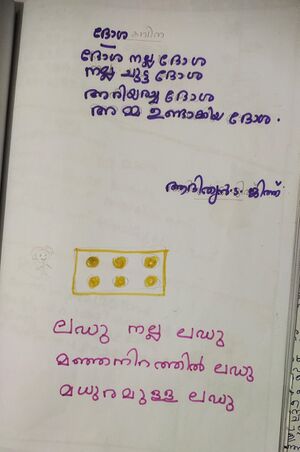 ദോശ
ദോശ നല്ല ദോശ
നല്ല ചുട്ട ദോശ
അനിയച്ച ദോശ
അമ്മ ഉണ്ടാക്കിയ ദോശ.
ആദിത്യൻ. ട. ജിത്ത്
ലഡു നല്ല ലഡു
മഞ്ഞനിറത്തിൽ ലഡു
മധുരമുള്ള ലഡു